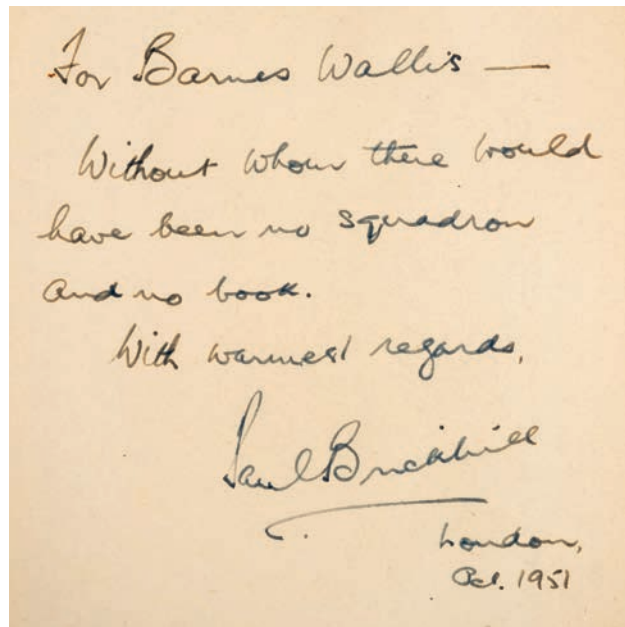 For Barnes Wallis —
Without whom there would
have been no squadron
and no book.
With warmest regards,
Paul Brickhill
London,
Oct. 1951